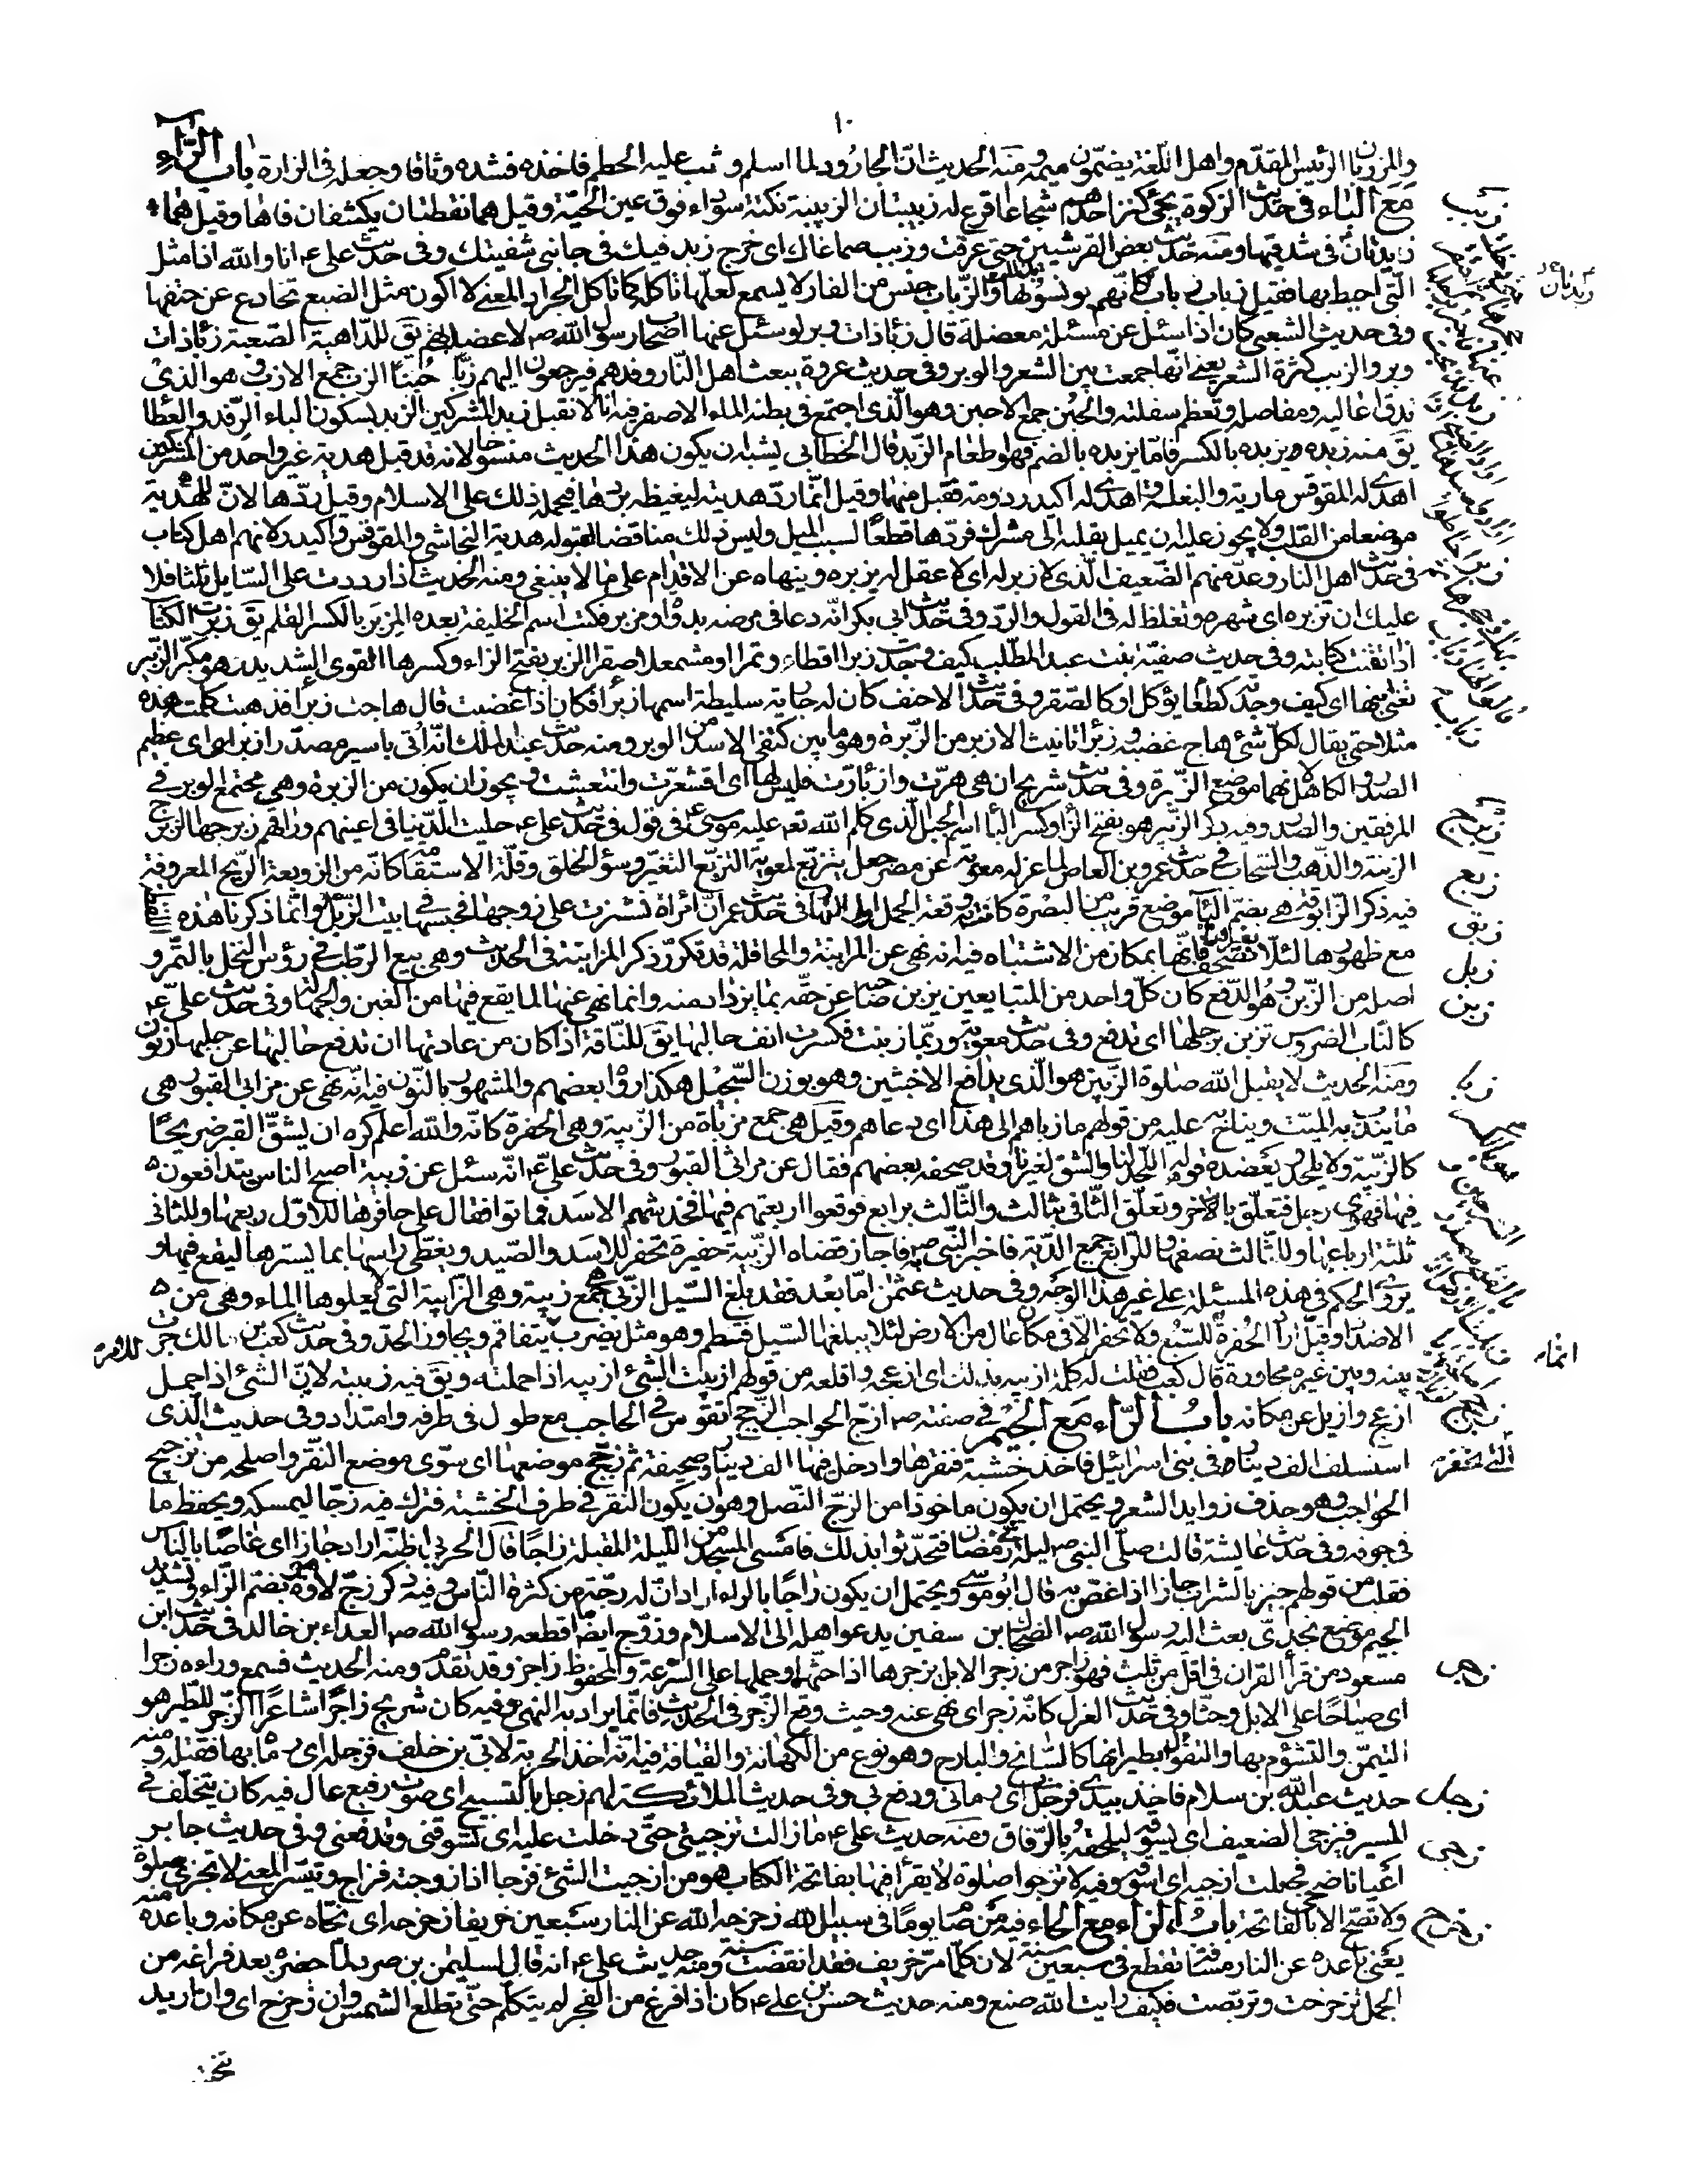 ١٠
والمرزبان الرئيس المقدّم واهل اللّغة يضمّون ميمه ومنه الحديث انّ الجارود لما اسلم وثب عليه الحطم فاخذه فشده وثاقا وجعله فى الزارة باب الزّاء
مع الباء فى حديث الزكوة يجئ كنز احدهم شجاعا اقرع له زبيبتان الزبيبة نكتة سوداء فوق عين الحيّة وقيل هما نقطتان يكتنفان فاها وقيل هما
زبدتان فى شدقيها ومنه حديث بعض القرشيين حتى عرقت وزبب صماغاك اى خرج زبد فيك فى جانبى شفتيك وفى حديث على ع انا والله اذا مثل
الّتى احيط بها فقيل زباب زباب كانّهم يونسونها والزّباب جنس من الفار لا يسمع لعلّها تاكله كما تاكل الجراد المعنى لا اكون مثل الضبع تخادع عن حتفها
وفى حديث الشعبى كان اذا سئل عن مسئلة معضلة قال زبّاء ذات وبر لو سئل عنها اصحاب رسول الله ص لاعضلت بهم يق للدّاهية الصّعبة زبّاء ذات
وبر والزبب كثرة الشعر يعنى انّها جمعت بين الشعر والوبر وفى حديث عروة يبعث اهل النّار وفدهم فيرجعون اليهم زبّا حُبنًا الزب جمع الازب وهو الذى
تدق اعاليه ومفاصله وتعظم سفلته والحبن جمع الاحبن وهو الّذى اجتمع فى بطنه الماء الاصفر فيه انا لا نقبل زبد المشركين الزبد بسكون الباء الرفد والعطا
يق منه زبده يزبده بالكسر فامّا يزبده بالضم فهو اطعام الزّبد قال الخطابى يشبه ان يكون هذا الحديث منسوخا لانه قد قبل هدية غير واحد من المشركين
اهدى له المقوقس مارية والبغلة واهدى له اكيدر دومة فقبل منهما وقيل انّما ردّ هديته ليغيظه بردّها فيحمله ذلك على الاسلام وقيل ردّها لانّ للهديّة
موضعا من القلب ولا يجوز عليه ان يميل بقلبه الى مشرك فردّها قطعًا لسبب الميل وليس ذلك مناقضا لقبوله هدية النجاشى والمقوقس واكيدر لانهم اهل كتاب
فى حديث اهل النار وعدّ منهم الضّعيف الّذى لا زبر له اى لا عقل له يزبره وينهاه عن الاقدام على ما لا ينبغى ومنه الحديث اذا رددت على السّايل ثلثا فلا
عليك ان تزبره اى تنهره وتغلظ له فى القول والردّ وفى حديث ابى بكر انّه دعا فى مرضه بدواة ومزبر فكتب اسم الخليفة بعده المزبر بالكسر القلم يق زبرت الكتاب
اذا اتقنت كتابته وفى حديث صفيّة بنت عبد المطّلب كيف وجدت زبرا اقطا وتمرا او مشمعلا صقرا الزبر بفتح الزاء وكسرها القوى الشديد وهو مكبّر الزّبير
تعنى ابنها اى كيف وجدته كطعام يؤكل او كالصّقر وفى حديث الاحنف كان له جارية سليطة اسمها زبرا فكان اذا غضبت قال هاجت زبرا فذهبت كلمته هذه
مثلا حتى يقال لكلّ شئ هاج غضبه وزبرا تانيث الازبر من الزّبرة وهو ما بين كتفى الاسد من الوبر ومنه حديث عبد الملك انّه اُتى باسير مصدّر ازبر اى عظيم
الصدر والكاهل لانهما موضع الزّبرة وفى حديث شريح ان هى هرّت وازبأرّت فليس لها اى اقشعرّت وانتفشت ويجوز ان يكون من الزبرة وهى مجتمع الوبر فى
المرفقين والصدر وفيه ذكر الزّبير هو بفتح الزاء وكسر الباء اسم الجبل الّذى كلم الله تعه عليه موسى ع فى قول فى حديث على ع حليت الدّنيا فى اعينهم وراقهم زبرجها الزبرج
الزينة والذّهب والسّحاب فى حديث عمرو بن العاص لما عزله معوية عن مصر جعل يتزبّع لمعوية التزبّع التغيّر وسوء الخلق وقلّة الاستقامة كانّه من الزوبعة الرّيح المعروفة
فيه ذكر الزّابوقة هى بضمّ الباء موضع قريب من البصرة كانت به وقعة الجمل اوّل النهار فى حديث عمر انّ امراة نشزت على زوجها فحبسها فى بيت الزّبل وانّما ذكرنا هذه اللفظة
مع ظهورها لئلا تصحّف بغيرها فانّها بمكان من الاشتباه فيه انه نهى عن المزابنة والمحاقلة قد تكرّر ذكر المزابنة فى الحديث وهى بيع الرّطب فى رؤس النخل بالتّمر و
اصله من الزّبن وهو الدّفع كان كلّ واحد من المتبايعين يزبن صاحبه عن حقّه بما يزداد منه وانما نهى عنها لما يقع فيها من الغبن والجهالة وفى حديث علىّ ع
كالنّاب الضروس تزبن برجلها اى تدفع وفى حديث معوية وربّما زبنت فكسرت انف حالبها يق للنّاقة اذا كان من عادتها ان تدفع حالبها عن حلبها زبون
ومنه الحديث لا يقبل الله صلوة الزّبين هو الّذى يدافع الاخبثين وهو بوزن السّجيل هكذا رواه بعضهم والمشهور بالنّون فيه انّه نهى عن مزابى القبور هى
ما يندب به الميّت ويناح عليه من قولهم ما زباهم الى هذا اى دعاهم وقيل هى جمع مزباة من الزّبية وهى الحفرة كانّه والله اعلم كره ان يشقّ القبر ضريحًا
كالزّبية ولا يلحد يعضده قوله اللّحد لنا والشق لغيرنا وقد صحفه بعضهم فقال عن مراثى القبور وفى حديث علىّ ع انّه سئل عن زبية اصبح الناس يتدافعون
فيها فهوى رجل فتعلّق بالآخر وتعلّق الثّانى بثالث والثّالث برابع فوقعوا اربعتهم فيها فخدشهم الاسد فماتوا فقال على حافرها للاوّل ربعها وللثانى
ثلثة ارباعها وللثّالث نصفها وللرابع جميع الدّية فاخبر النّبى ص به فاجاز قضاه الزّبية حفيرة تحفر للاسد والصّيد ويغطّى راسها بما يسترها ليقع فيها و
يروى الحكم فى هذه المسئلة على غير هذا الوجه وفى حديث عثمن امّا بعد فقد بلغ السّيل الزّبى هى جمع زبية وهى الرّابية التى لا يعلوها الماء وهى من
الاضداد وقيل اراد الحفرة للسّبع ولا تحفر الا فى مكان عال من الارض لئلا يبلغها السّيل فتنطمّ وهو مثل يضرب لامر يتفاقم ويجاوز الحدّ وفى حديث كعب بن مالك جرت
بينه وبين غيره محاورة قال كعب فقلت له كلمة ازبيه بذلك اى ازعجه واقلعه من قولهم ازبيت الشئ ازبيه اذا حملته ويق فيه زبيته لانّ الشئ اذا حمل
ازعج وازيل عن مكانه باب الزّاء مع الجيم فى صفته ص ازجّ الحواجب الزّجج تقوّس فى الحاجب مع طول فى طرفه وامتداد وفى حديث الّذى
استسلف الف دينار فى بنى اسرائيل فاخذ خشبة فنقرها وادخل فيها الف دينار وصحيفة ثم زجّج موضعها اى سوّى موضع النّقر واصلحه من تزجيج
الحواجب وهو حذف زوايد الشعر ويحتمل ان يكون ماخوذا من الزجّ النّصل وهو ان يكون النقر فى طرف الخشبة فترك فيه زجّا ليمسكه ويحفظ ما
فى جوفه وفى حديث عايشة قالت صلّى النبى ص ليلة فى رمضان فتحدّثوا بذلك فامسى المسجد من اللّيلة المقبلة زاجًا قال الحربى اظنّه اراد جازا اى غاصّا بالنّاس
فقلب من قولهم جئز بالشراب جازا اذا غصّ به قال ابو موسى ويحتمل ان يكون راجًا بالراء اراد انّ له رجّة من كثرة النّاس وفيه ذكر زجّ لاوة هو بضم الزّاء وتشديد
الجيم موضع نجدىّ بعث اليه رسول الله ص الضحاك بن سفين يدعو اهله الى الاسلام وزجّ ايضا اقطعه رسول الله ص العداء بن خالد فى حديث ابن
مسعود من قرأ القران فى اقلّ من ثلث فهو زاجر من زجر الابل يزجرها اذا حثّها وحملها على السّرعة والمحفوظ راجز وقد تقدّم ومنه الحديث فسمع وراءه زجرا
اى صياحًا على الابل وحثّا وفى حديث العزل كانّه زجر اى نهى عنه وحيث وقع الزّجر فى الحديث فانّما يراد به النّهى وفيه كان شريح زاجرًا شاعرًا الزّجر للطّير هو
التيمّن والتشؤم بها والتفؤل بطيرانها كالسّانح والبارح وهو نوع من الكهانة والقيافة فيه انّه اخذ الحربة لابىّ بن خلف فزجله اى رماه بها فقتله ومنه
حديث عبد الله بن سلام فاخذ بيدى فزجل اى رمانى ودفع بى وفى حديث الملائكة لهم زجل بالتسبيح اى صوت رفيع عال فيه كان يتخلّف فى
المسير فيزجى الضعيف اى يسوقه ليلحقه بالرّفاق ومنه حديث على ع ما زالت تزجينى حتّى دخلت عليه اى تسوقنى وتدفعنى وفى حديث جابر
اعيا ناضحى فجعلت ازجيه اى اسوقه وفيه لا تزجو صلوة لا يقرأ فيها بفاتحة الكتاب هو من ازجيت الشئ فزجا اذا روّجته فراج وتيسّر المعنى لا تجزى صلوة
ولا تصحّ الا بالفاتحة باب الزاء مع الحاء فيه من صام يومًا فى سبيل الله زحزحه الله عن النار سبعين خريفا زحزحه اى نحّاه عن مكانه وباعده منه
يعنى باعده عن النار مسافة تقطع فى سبعين سنة لان كلّما مرّ خريف فقد انقضت سنة ومنه حديث على ع انه قال لسليمن بن صرد لمّا حضره بعد فراغه من
الجمل تزحزحت وتربّصت فكيف رايت الله صنع ومنه حديث حسن بن على ع كان اذا فرغ من الفجر لم يتكلّم حتّى تطلع الشمس وان زحزح اى وان اريد
زبب
زبدتان
زبرج
زبع
زبق
زبل
زبن
زبا
زجج
زجر
زجل
زجى
زحزح